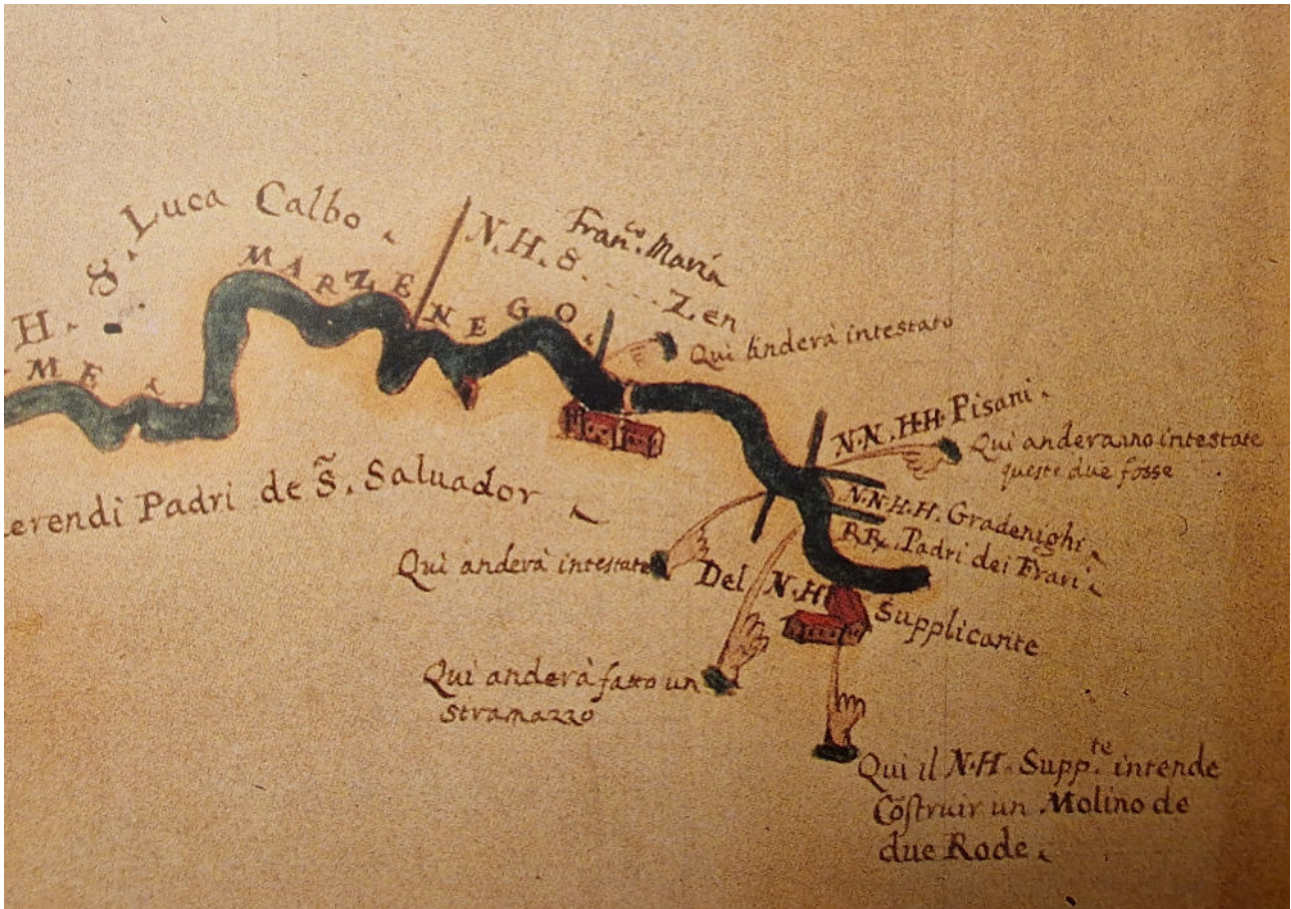 H. S. Luca Calbo
N. H. S. Fran.co Maria
Zen
FIUME MARZENEGO
Qui anderà intestato
N.N. HH. Pisani
Qui anderanno intestate
queste due fosse
erendi Padri de S̃. Saluador
N.N.H.H. Gradenighi
RR. Padri dei Frari
Qui anderà intestato
Del N.H. Supplicante
Qui anderà fatto un
stramazzo
Qui il N.H. Supp.te intende
Cõstruir un Molino de
due Rode